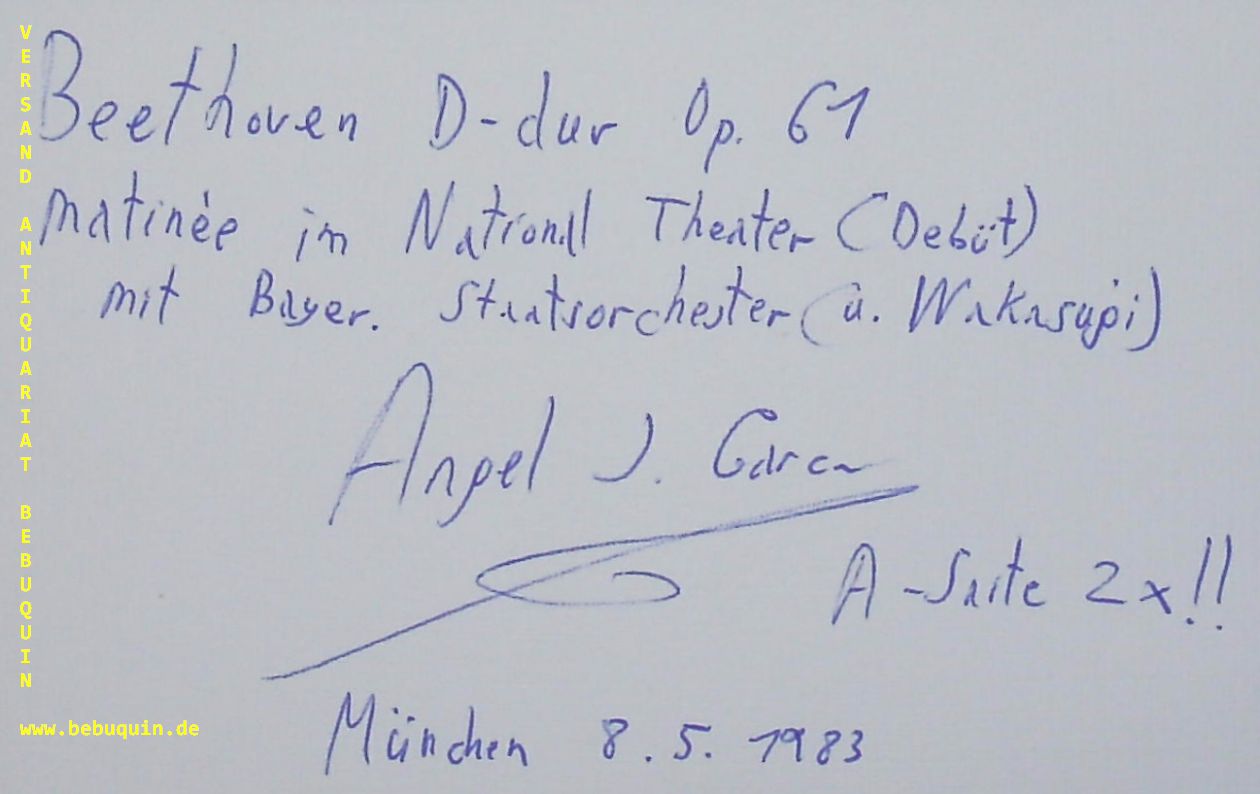 VERSAND ANTIQUARIAT BEBUQUIN
Beethoven D-dur Op. 61
Matinée im National Theater (Debüt)
mit Bayer. Staatsorchester (u. Wakasugi)
Angel J. Garcia
A-Saite 2x!!
München 8.5.1983
www.bebuquin.de